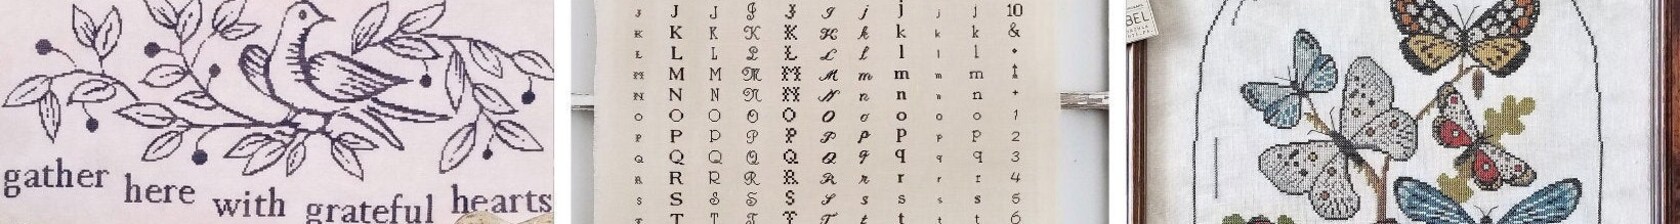 gather here with grateful hearts
J J J J J J j j j j 10
K K K K K K k k k k &
L L L L L L l l l l
M M M M M M m m m m
N N N N N N n n n n
O O O O O O o o o o 1
P P P P P P p p p p 2
Q Q Q Q Q Q q q q q 3
R R R R R R r r r r 4
S S S S S S s s s s 5
T T T T T T t t t t 6
BEL